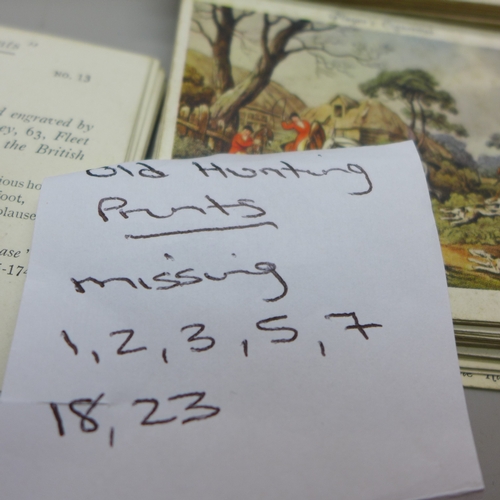 sts"
NO. 13
d engraved by
ey, 63, Fleet
the British
ious ho
foot,
plause
ase '
-174
Old Hunting
Prints
missing
1, 2, 3, 5, 7
18, 23